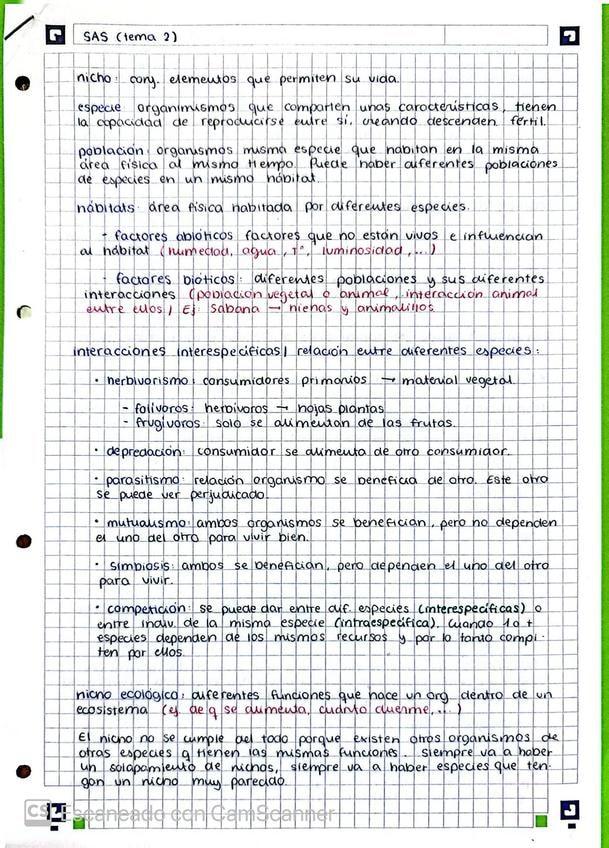 SAS (tema 2)
nicho: conj. elementos que permiten su vida.
especie: organimismos que comparten unas características, tienen
la capacidad de reproducirse entre sí, creando descenden fértil.
población: organismos misma especie que habitan en la misma
área física al mismo tiempo. Puede haber diferentes poblaciones
de especies en un mismo hábitat.
hábitats: área física habitada por diferentes especies.
- factores abióticos: factores que no están vivos e influencian
al hábitat (humedad, agua, Tª, luminosidad, ...)
- factores bióticos: diferentes poblaciones y sus diferentes
interacciones (población vegetal o animal, interacción animal
entre ellos) Ej: Sabana → hienas y animalillos
interacciones interespecíficas / relación entre diferentes especies:
• herbivorismo: consumidores primarios → material vegetal
- folívoros: herbívoros → hojas plantas
- frugívoros: solo se alimentan de las frutas.
• depredación: consumidor se alimenta de otro consumidor.
• parasitismo: relación organismo se beneficia de otro. Este otro
se puede ver perjudicado.
• mutualismo: ambos organismos se benefician, pero no dependen
el uno del otro para vivir bien.
• simbiosis: ambos se benefician, pero dependen el uno del otro
para vivir.
• competición: se puede dar entre dif. especies (interespecíficas) o
entre indiv. de la misma especie (intraespecífica). Cuando 1 o +
especies dependen de los mismos recursos y por lo tanto compi-
ten por ellos.
nicho ecológico: diferentes funciones que hace un org. dentro de un
ecosistema (ej. de q se alimenta, cuánto duerme, ...)
El nicho no se cumple del todo porque existen otros organismos de
otras especies q tienen las mismas funciones. Siempre va a haber
un solapamiento de nichos, siempre va a haber especies que ten-
gan un nicho muy parecido.
CS Escaneado con CamScanner